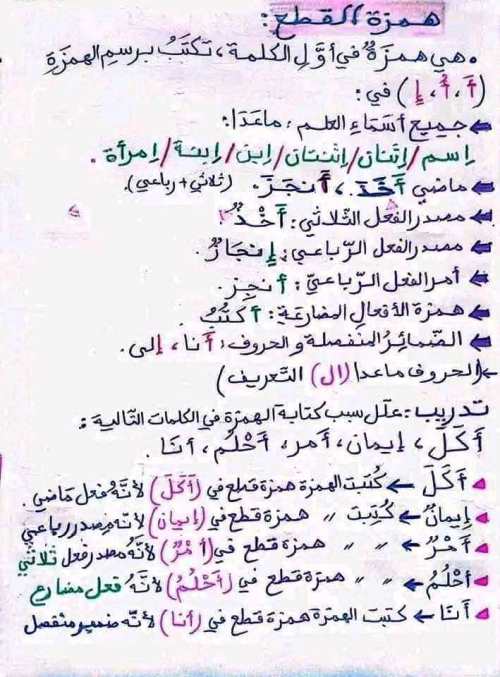 همزة القطع:
• هي همزَةٌ في أوَّلِ الكلمة، تكتَبُ برسمِ الهمزَةِ
(أَ، أُ، إِ) في:
← جميع أسمَاءِ العلم، ماعَدَا:
اِسم/اِثنان/اِثنتان/اِبن/اِبنة/اِمرأة.
← ماضي أَخَذَ، أَنجَزَ. (ثلاثي + رباعي).
← مصدر الفعل الثّلاثي: أَخْذٌ.
← مصدر الفعل الرّباعي: إِنجَازٌ.
← أمر الفعل الرّباعيّ: أَنجِز.
← همزة الأفعالِ المضارعَة: أَكتُبُ.
← الضّمائرُ المنفصلة و الحروف: أَنا، إِلى.
← (الحروف ماعدا (ال) التّعريف)
تدريب: علّل سبب كتابة الهمزة في الكلمات التّالية:
أَكَلَ، إيمان، أَمر، أَحْلُمُ، أَنا.
أَكَلَ ← كُتبت الهمزة همزة قطع في (أَكَلَ) لأنّهُ فعل ماضي.
إيمانٌ ← كُتِبَت " همزة قطع في (إيمان) لأنّه مصدر رباعي
أَمْرٌ ← " " همزة قطع في (أَمْرٌ) لأنّهُ مصدر فعل ثلاثي
أَحْلُمُ ← " " همزة قطع في (أَحْلُمُ) لأنّهُ فعل مضارع
أَنَا ← كتبت الهمزة همزة قطع في (أنا) لأنّه ضمير منفصل